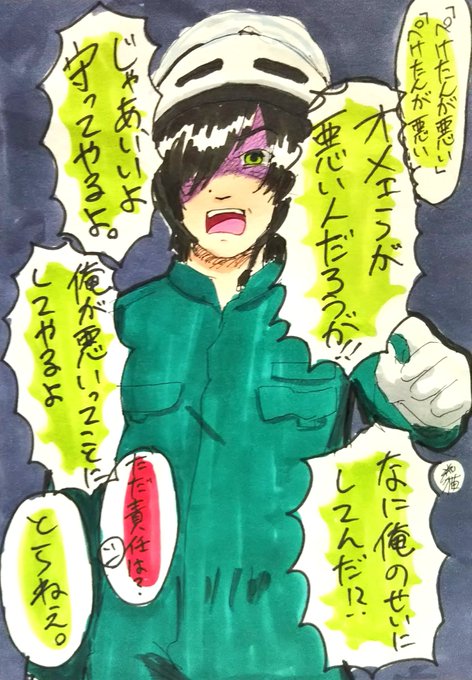 「ぺけたんが悪い」
「ぺけたんが悪い
オメェらが
悪い人だろうが!!
なに俺のせいに
してんだ!?
じゃあいいよ
守ってやるよ。
俺が悪いってことに
してやるよ
ただ責任は?
とらねえ。